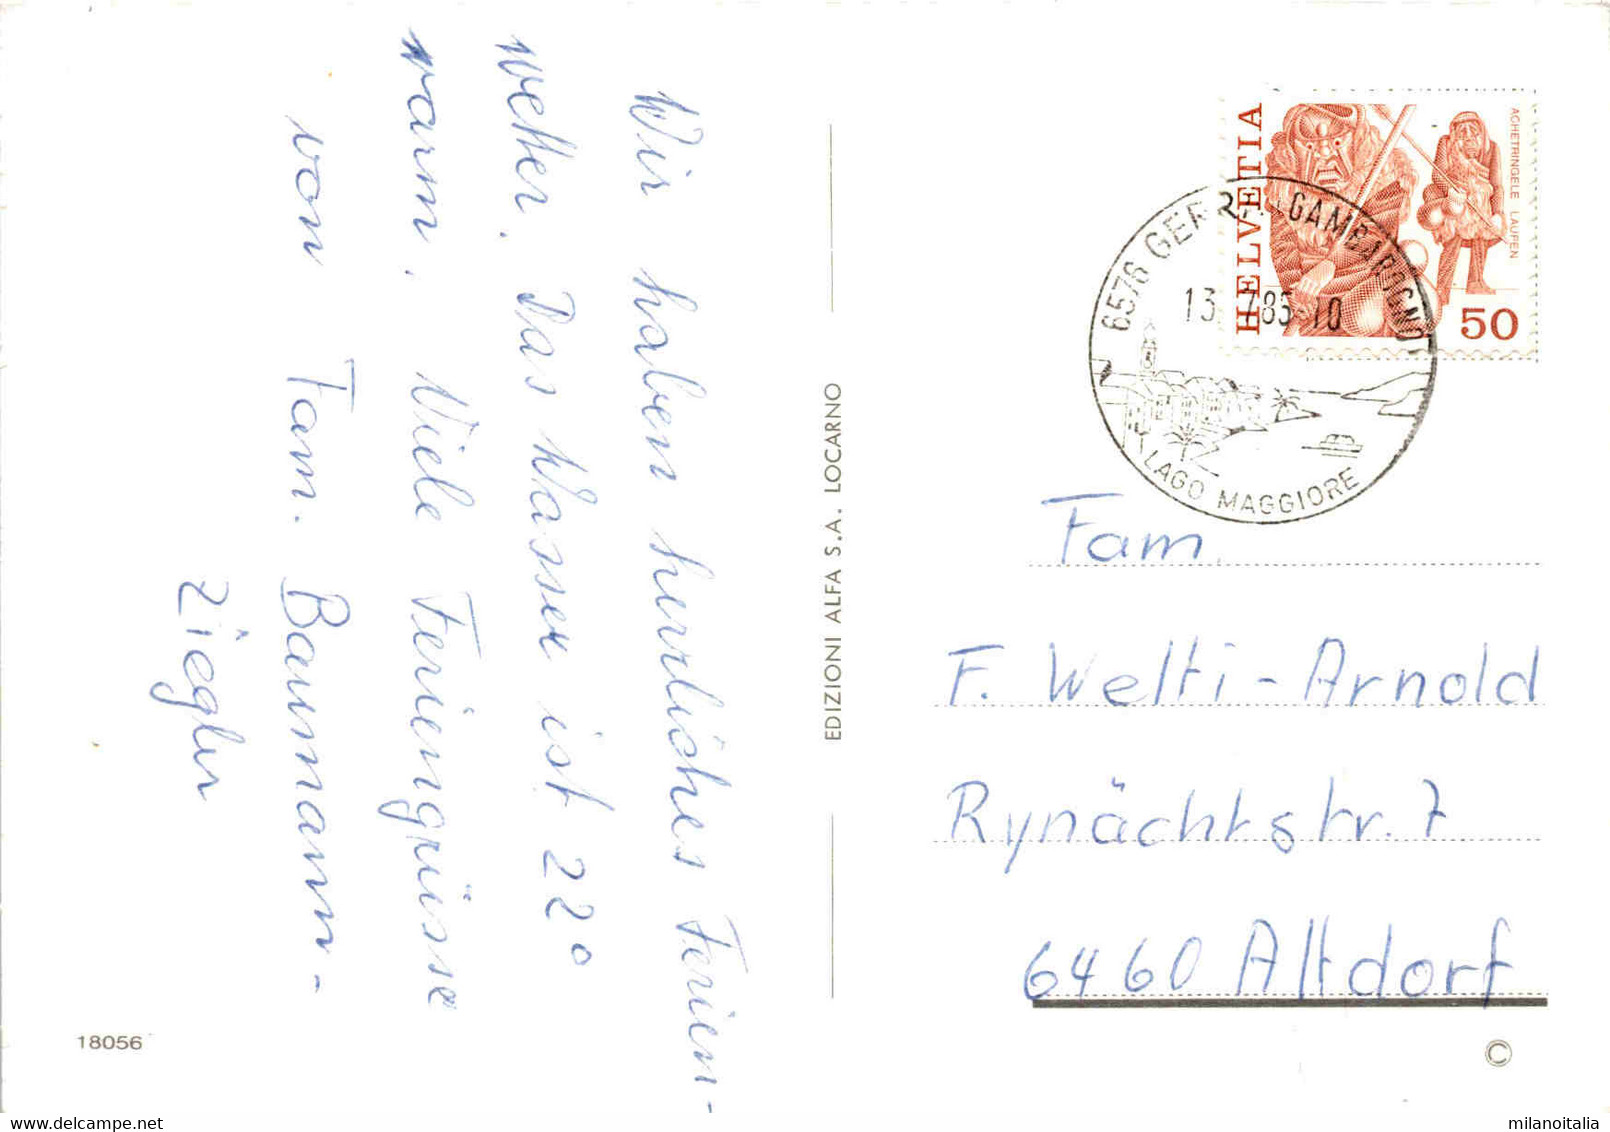 Wir haben herrliches Ferien-
wetter. Das Wasser ist 22°
warm. Viele Feriengrüsse
von Fam. Baumann-
Ziegler
EDIZIONI ALFA S.A. LOCARNO
18056
HELVETIA
AGHETRINGELE LAUPEN
50
6576 GERRA GAMBAROGNO
13. 7.85-10
LAGO MAGGIORE
Fam.
F. Welti-Arnold
Rynächtstr. 7
6460 Altdorf
©
milanoitalia